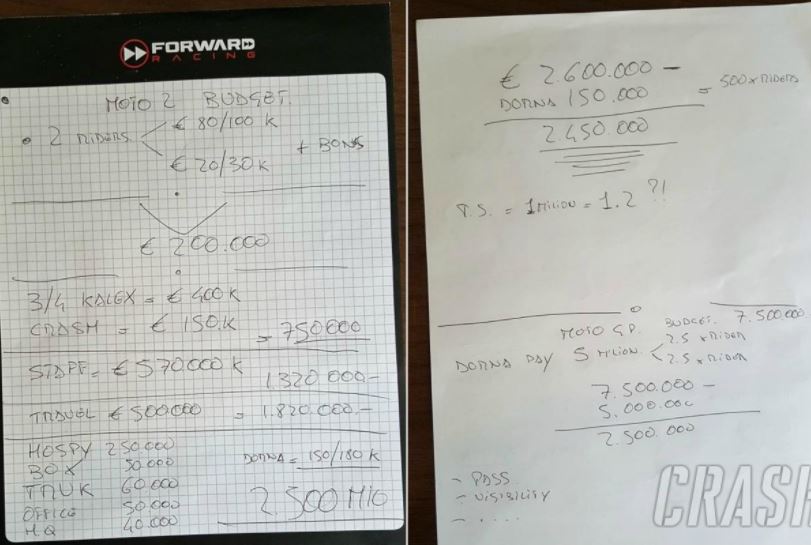 FORWARD
RACING
MOTO 2 BUDGET.
• 2 RIDERS < € 80/100 K
€ 20/30 K
+ BONS
€ 200.000
3/4 KALEX = € 400 K
CRASH = € 150.K = 750000
STAFF = € 570.000 K
1.320 000-
TRAVEL € 500000 = 1.820.000.-
HOSPY 250.000
BOX 50.000
TRUK 60.000
OFFICE 50.000
H.Q 40.000
DORNA = 150/180 K
2.500 MIO
€ 2.600.000 -
DORNA 150.000 = 500 x RIDERS
2.450.000
P.S. = 1 MILION = 1.2 ?!
MOTO G.P. BUDGET. 7.500000
DORNA PAY 5 MILION. < 2.5 x RIDER
2.5 x RIDER
7.500.000 -
5.000.000
2.500.000
- PASS
- VISIBILITY
- .....
CRASH